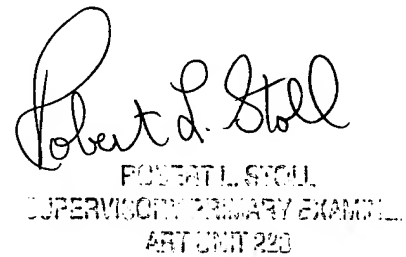 Robert L. Stoll
ROBERT L. STOLL
SUPERVISORY PRIMARY EXAMINE
ART UNIT 220